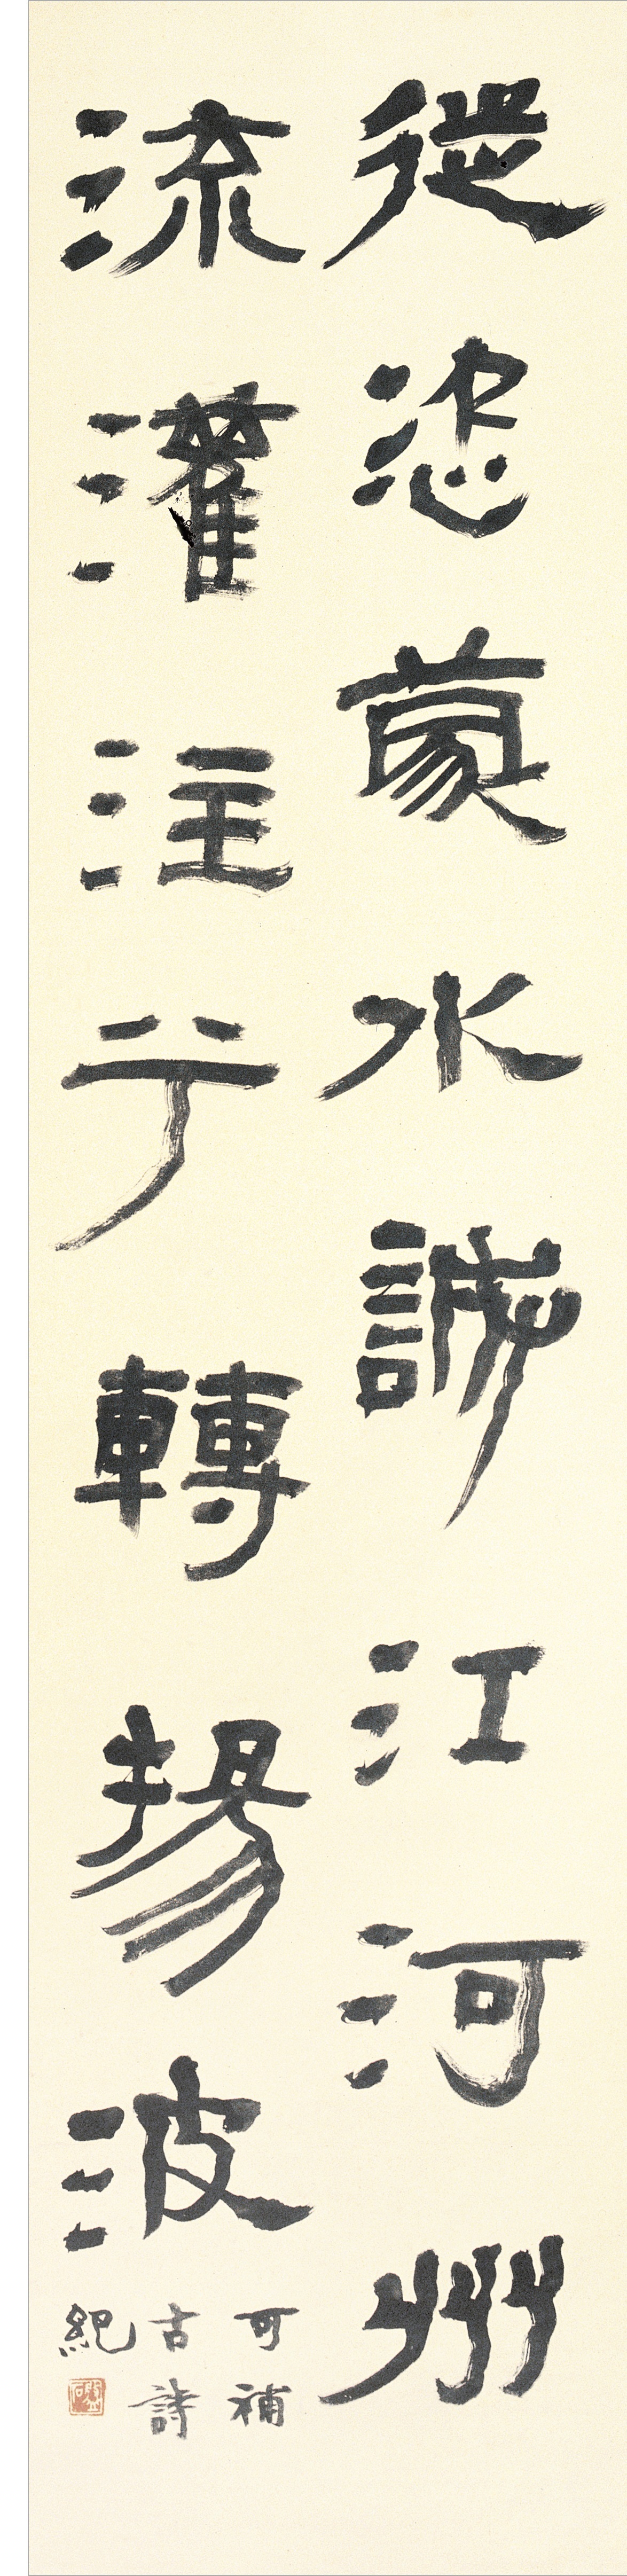 從恣蒙水誠江河州
流灌注兮轉揚波
可補
古詩
紀